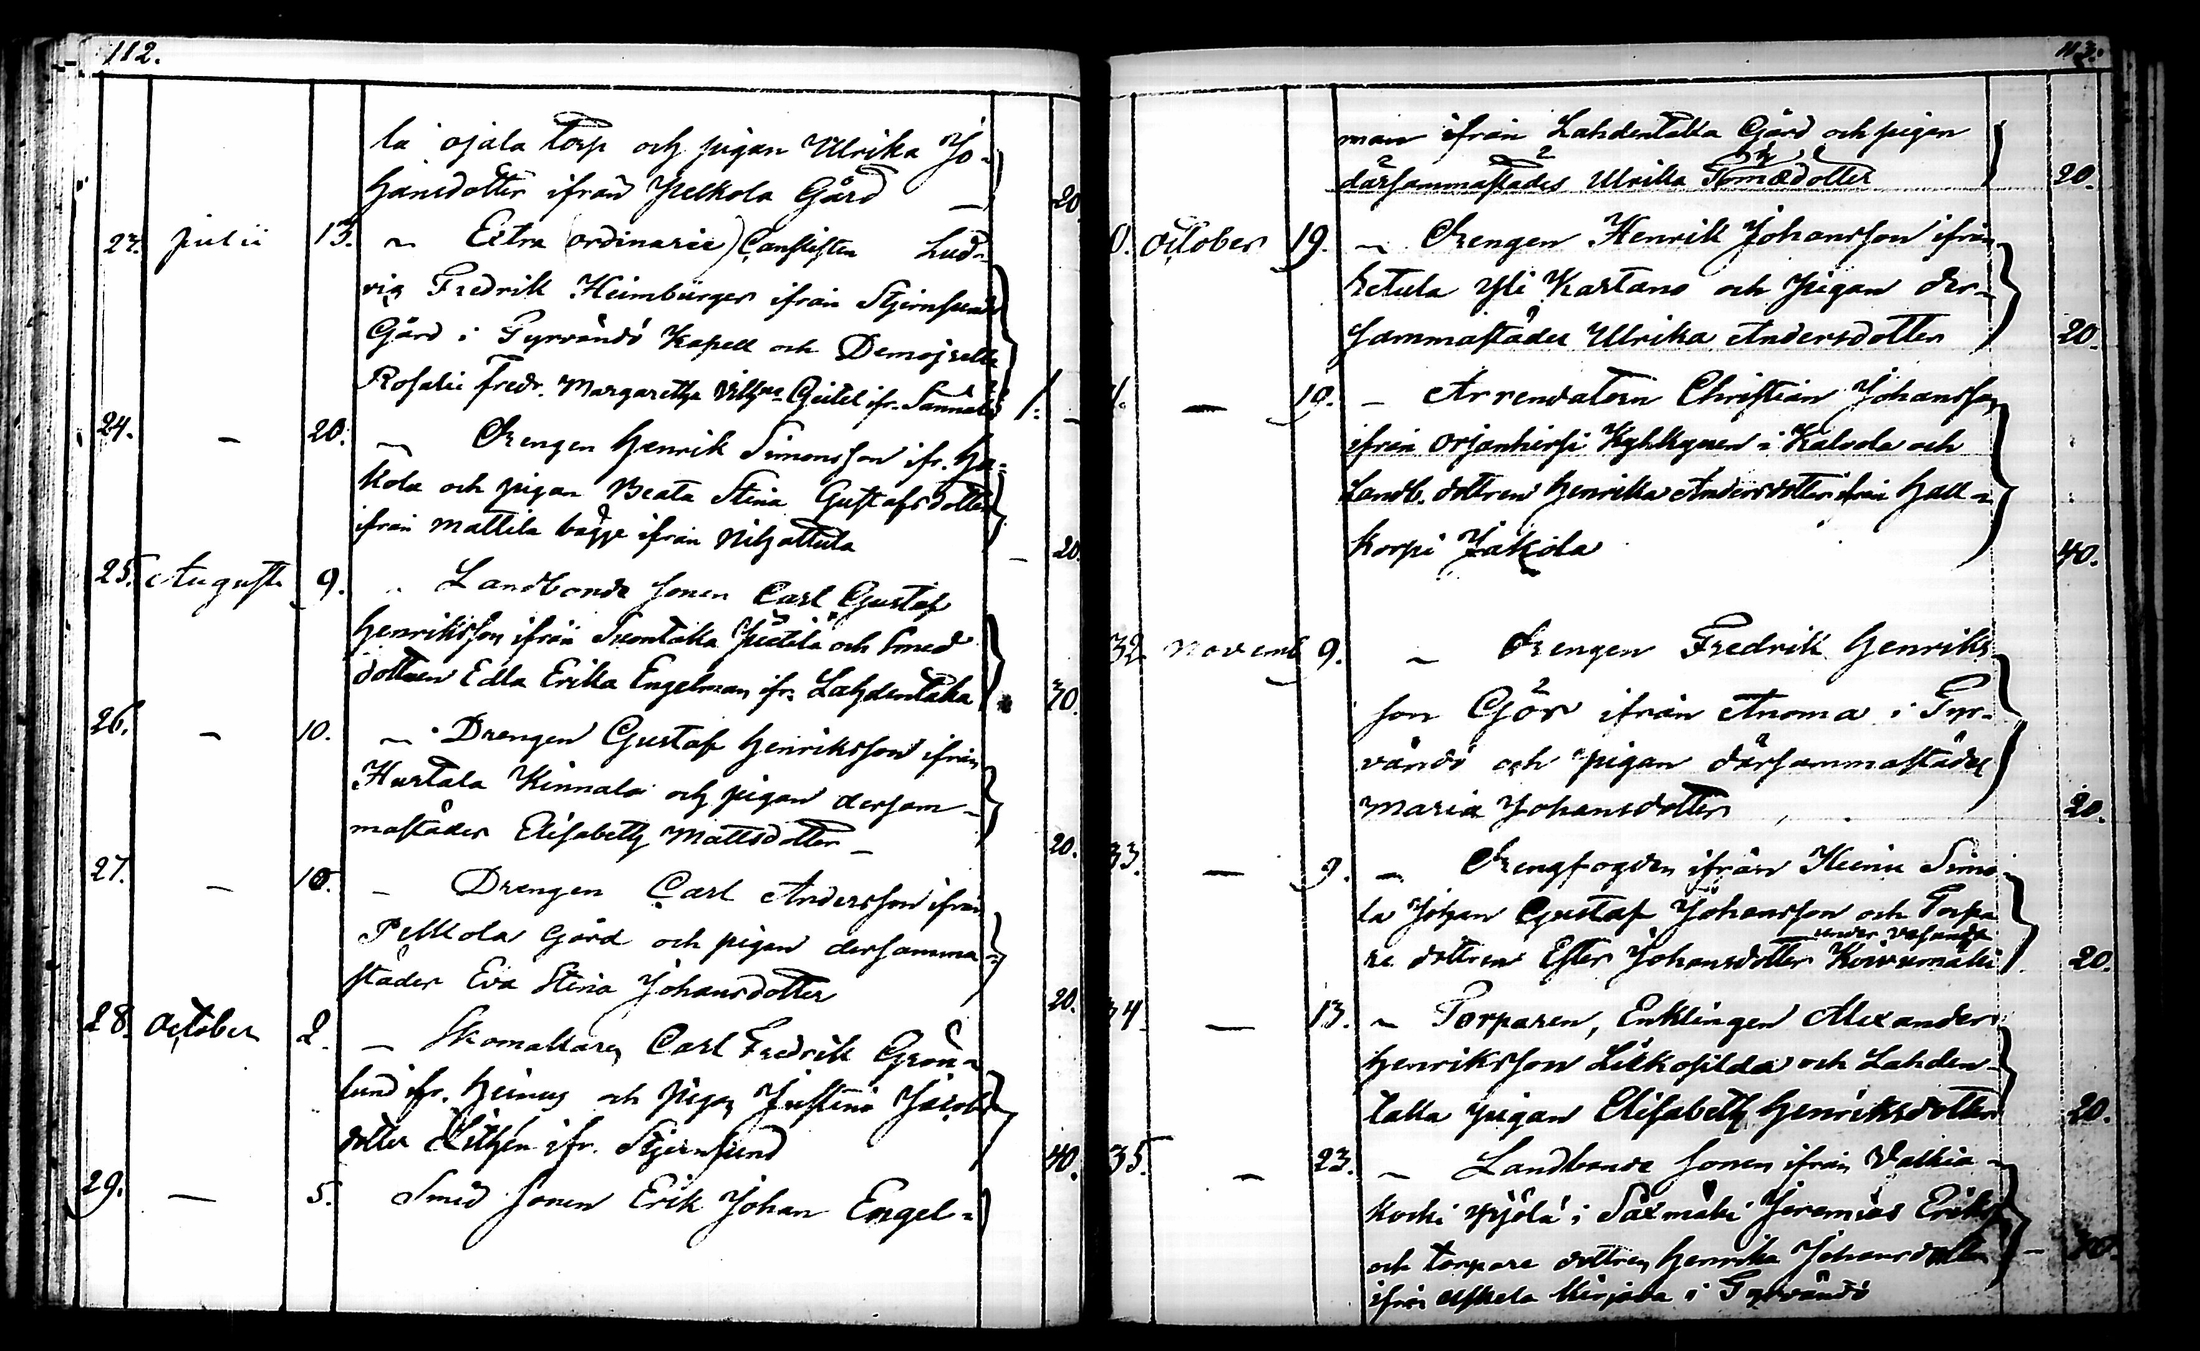 112.
la ojala torp och pigan Ulrika Jo-
hansdotter ifrån Pelkola Gård — 20
23. Julii 13. Extra (ordinarie) Canslisten Lud-
vig Fredrik Heimbürger ifrån Stjernsunds
Gård i Tyrvändö Kapell och Demoiselle
Rosalie Fredr. Margaretha Vilh:na Geitel ifr. Sannals 1. —
24. — 20. Drengen Henrik Simonsson ifr. Ha-
kola och pigan Beata Stina Gustafsdotter
ifrån Mattila bägge ifrån Nihattula — 20
25. Augusti 9. Landbonde sonen Carl Gustaf
Henriksson ifrån Suontaka Juttila och Smed
dottren Edla Erika Engelman ifr. Lahdentaka 70.
26. — 10. Drengen Gustaf Henriksson ifrån
Hurtala Kinnala och pigan dersam-
mastädes Elisabeth Mattsdotter — 20.
27. — 10. — Drengen Carl Andersson ifrån
Pelkola Gård och pigan dersamma-
städes Eva Stina Johansdotter 20.
28. October 2. — Skomakaren Carl Fredrik Grön-
lund ifr. Heinus och Pigan Justina Jacobs
dotter Lithén ifr. Stjernsund 40.
29. — 5. Smed Sonen Erik Johan Engel-
113.
man ifrån Lahdentaka Gård och pigan
därsammastädes Ulrika Tomædotter 20.
0. October 19. — Drengen Henrik Johansson ifrån
Retula Yli Kartano och Pigan der-
sammastädes Ulrika Andersdotter 20.
1. — 19. — Arrendatorn Christian Johansson
ifrån Orjanhirsi Kyhkynen i Kalvola och
Landb. dottren Henrika Andersdotter ifrån Hall-
korpi Jakola 40.
32 Novemb 9. — Drengen Fredrik Henriks
son Gös ifrån Anoma i Tyr-
vändö och pigan därsammastädes
Maria Johansdotter 20.
33. — 9. — Drengfogden ifrån Heinu Simo
la Johan Gustaf Johansson och Torpa
under
re dottren Ester Johansdotter Koivumäki 20.
34 — 13. — Torparen, Enklingen Alexander
Henriksson Likkosilda och Lahden-
taka pigan Elisabeth Henriksdotter 20.
35. — 23. — Landbonde sonen ifrån Valkia-
koski Yijölä i Säxmäki Jeremias Eriks
och torpare dottren Henrika Johansdotter —
ifrån Uskela Kirjava i Tyrvändö